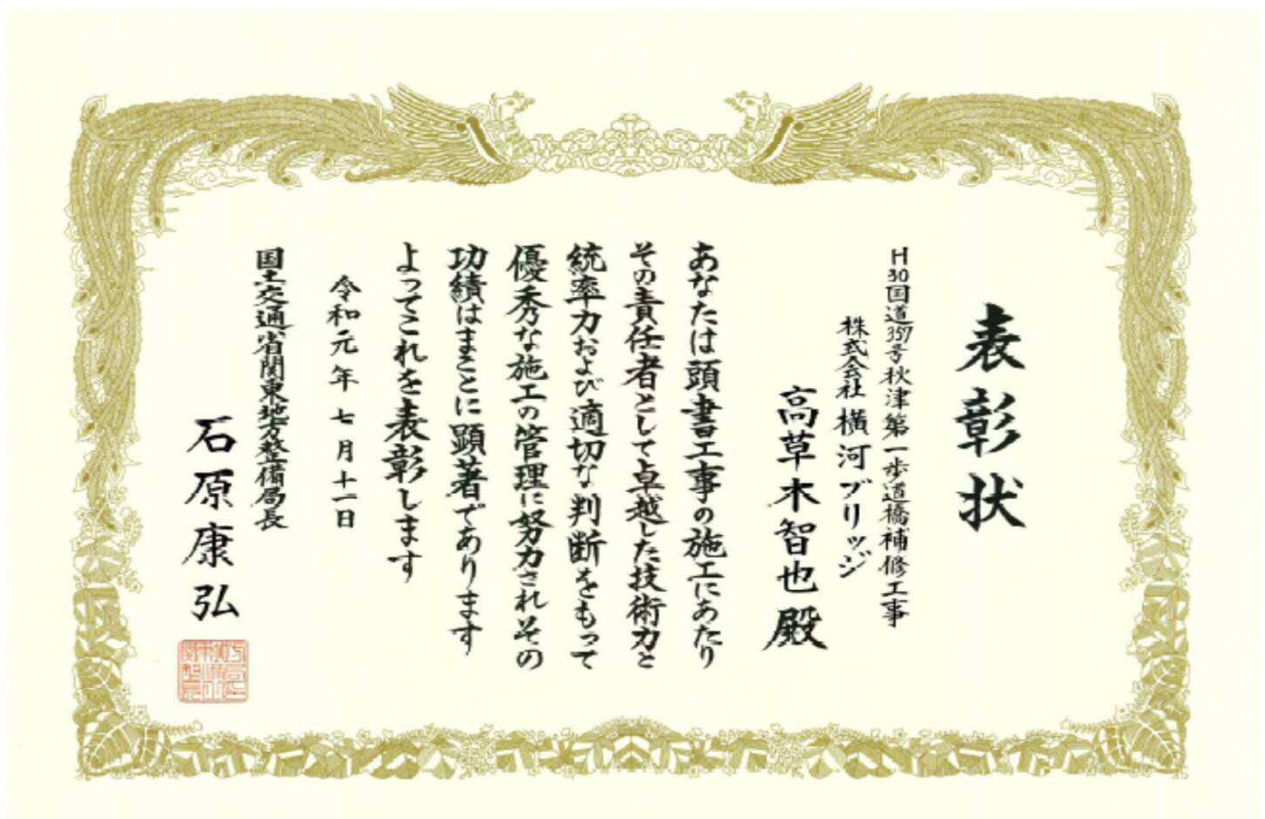 表彰状
H30国道357号秋津第一歩道橋補修工事
株式会社 横河ブリッジ
高草木智也殿
あなたは頭書工事の施工にあたり
その責任者として卓越した技術力と
統率力および適切な判断をもって
優秀な施工の管理に努力されその
功績はまことに顕著であります
よってこれを表彰します
令和元年七月十一日
国土交通省関東地方整備局長
石原康弘